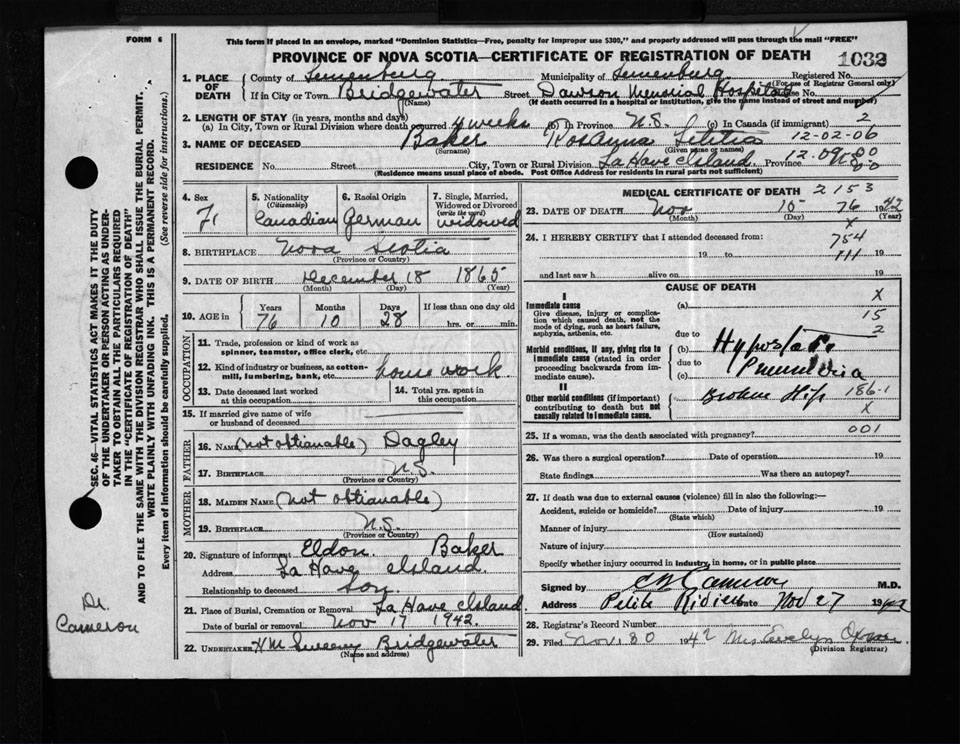 FORM 6
This form if placed in an envelope, marked "Dominion Statistics—Free, penalty for improper use $300," and properly addressed will pass through the mail "FREE"
PROVINCE OF NOVA SCOTIA—CERTIFICATE OF REGISTRATION OF DEATH
1032
1. PLACE OF DEATH
County of Lunenburg Municipality of Lunenburg Registered No.
(For use of Registrar General only)
If in City or Town Bridgewater Street Dawson Memorial Hospital No.
(Name) (If death occurred in a hospital or institution, give the name instead of street and number)
2. LENGTH OF STAY (in years, months and days)
(a) In City, Town or Rural Division where death occurred 4 weeks (b) In Province N.S. (c) In Canada (if immigrant) 2
12-02-06
3. NAME OF DECEASED Baker Rosanna Letitia
(Surname) (Given name or names)
RESIDENCE No. Street City, Town or Rural Division LaHave Island Province
(Residence means usual place of abode. Post Office Address for residents in rural parts not sufficient)
4. Sex
F.
5. Nationality (Citizenship)
Canadian
6. Racial Origin
German
7. Single, Married, Widowed or Divorced (write the word)
widowed
8. BIRTHPLACE Nova Scotia
(Province or Country)
9. DATE OF BIRTH December 18 1865
(Month) (Day) (Year)
10. AGE in
Years Months Days If less than one day old
76 10 28 hrs. or min.
OCCUPATION
11. Trade, profession or kind of work as spinner, teamster, office clerk, etc.
12. Kind of industry or business, as cotton-mill, lumbering, bank, etc. house work.
13. Date deceased last worked at this occupation
14. Total yrs. spent in this occupation
15. If married give name of wife or husband of deceased
FATHER
16. NAME (not obtianable) Dagley
17. BIRTHPLACE N.S.
(Province or Country)
MOTHER
18. MAIDEN NAME (not obtianable)
19. BIRTHPLACE N.S.
(Province or Country)
20. Signature of informant Eldon Baker
Address LaHave Island.
Relationship to deceased Son.
21. Place of Burial, Cremation or Removal LaHave Island.
Date of burial or removal Nov 17 1942.
22. UNDERTAKER HM Sweeny Bridgewater
(Name and address)
MEDICAL CERTIFICATE OF DEATH 2153
23. DATE OF DEATH Nov 15 76 1942
(Month) (Day) (Year)
x
24. I HEREBY CERTIFY that I attended deceased from:
754
19 to 111 19
and last saw h alive on 19
CAUSE OF DEATH
I
Immediate cause
Give disease, injury or complication which caused death, not the mode of dying, such as heart failure, asphyxia, asthenia, etc.
(a) X
15
2
due to
Morbid conditions, if any, giving rise to immediate cause (stated in order proceeding backwards from immediate cause).
(b) Hypostatic
due to
(c) Pneumonia
II
Other morbid conditions (if important) contributing to death but not causally related to immediate cause.
Broken Hip 186.1
X
001
25. If a woman, was the death associated with pregnancy?
26. Was there a surgical operation? Date of operation 19
State findings Was there an autopsy?
27. If death was due to external causes (violence) fill in also the following:—
Accident, suicide or homicide? Date of injury 19
(State which)
Manner of injury
(How sustained)
Nature of injury
Specify whether injury occurred in industry, in home, or in public place
Signed by Cameron M.D.
Address Petite Riviere Date Nov 27 1942
28. Registrar's Record Number
29. Filed Nov. 30 1942 Mrs Evelyn
(Division Registrar)
SEC. 46—VITAL STATISTICS ACT MAKES IT THE DUTY
OF THE UNDERTAKER OR PERSON ACTING AS UNDERTAKER
TO OBTAIN ALL THE PARTICULARS REQUIRED
IN THE "CERTIFICATE OF REGISTRATION OF DEATH"
AND TO FILE THE SAME WITH THE DIVISION REGISTRAR WHO SHALL ISSUE THE BURIAL PERMIT.
WRITE PLAINLY WITH UNFADING INK. THIS IS A PERMANENT RECORD.
Every item of information should be carefully supplied. (See reverse side for instructions.)
Dr.
Cameron